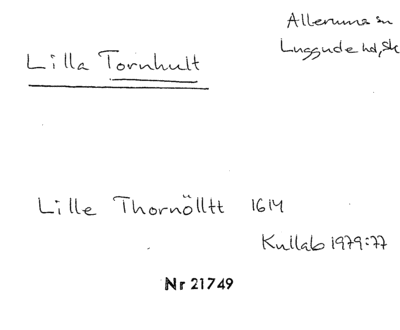 Allerums sn
Luggude hd, Sk
Lilla Tornhult
Lille Thornölltt 1614
Kullab 1979:77
Nr 21749